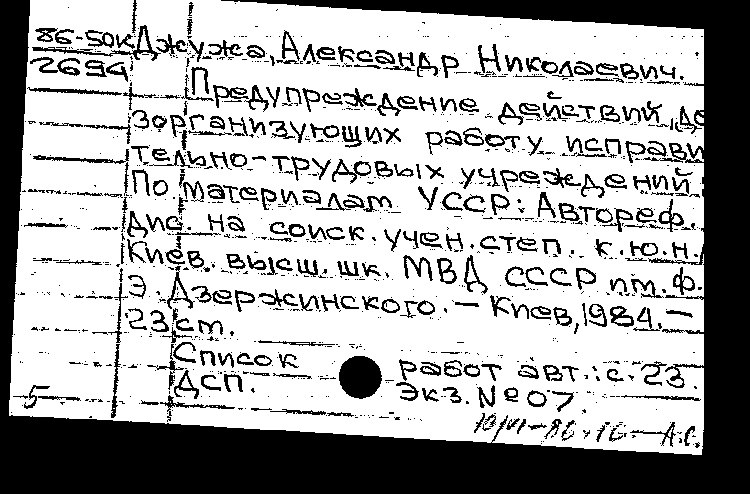 86-50к Джужа, Александр Николаевич.
2694
Предупреждение действий, де
зорганизующих работу исправи
тельно-трудовых учреждений:
По материалам УССР: Автореф.
дис. на соиск. учен. степ. к.ю.н./
Киев. высш. шк. МВД СССР им. Ф.
Э. Дзержинского. – Киев, 1984. –
23 ст.
Список работ авт.: с. 23.
ДСП. Экз. № 07.
5 10/VI-86. А.С.